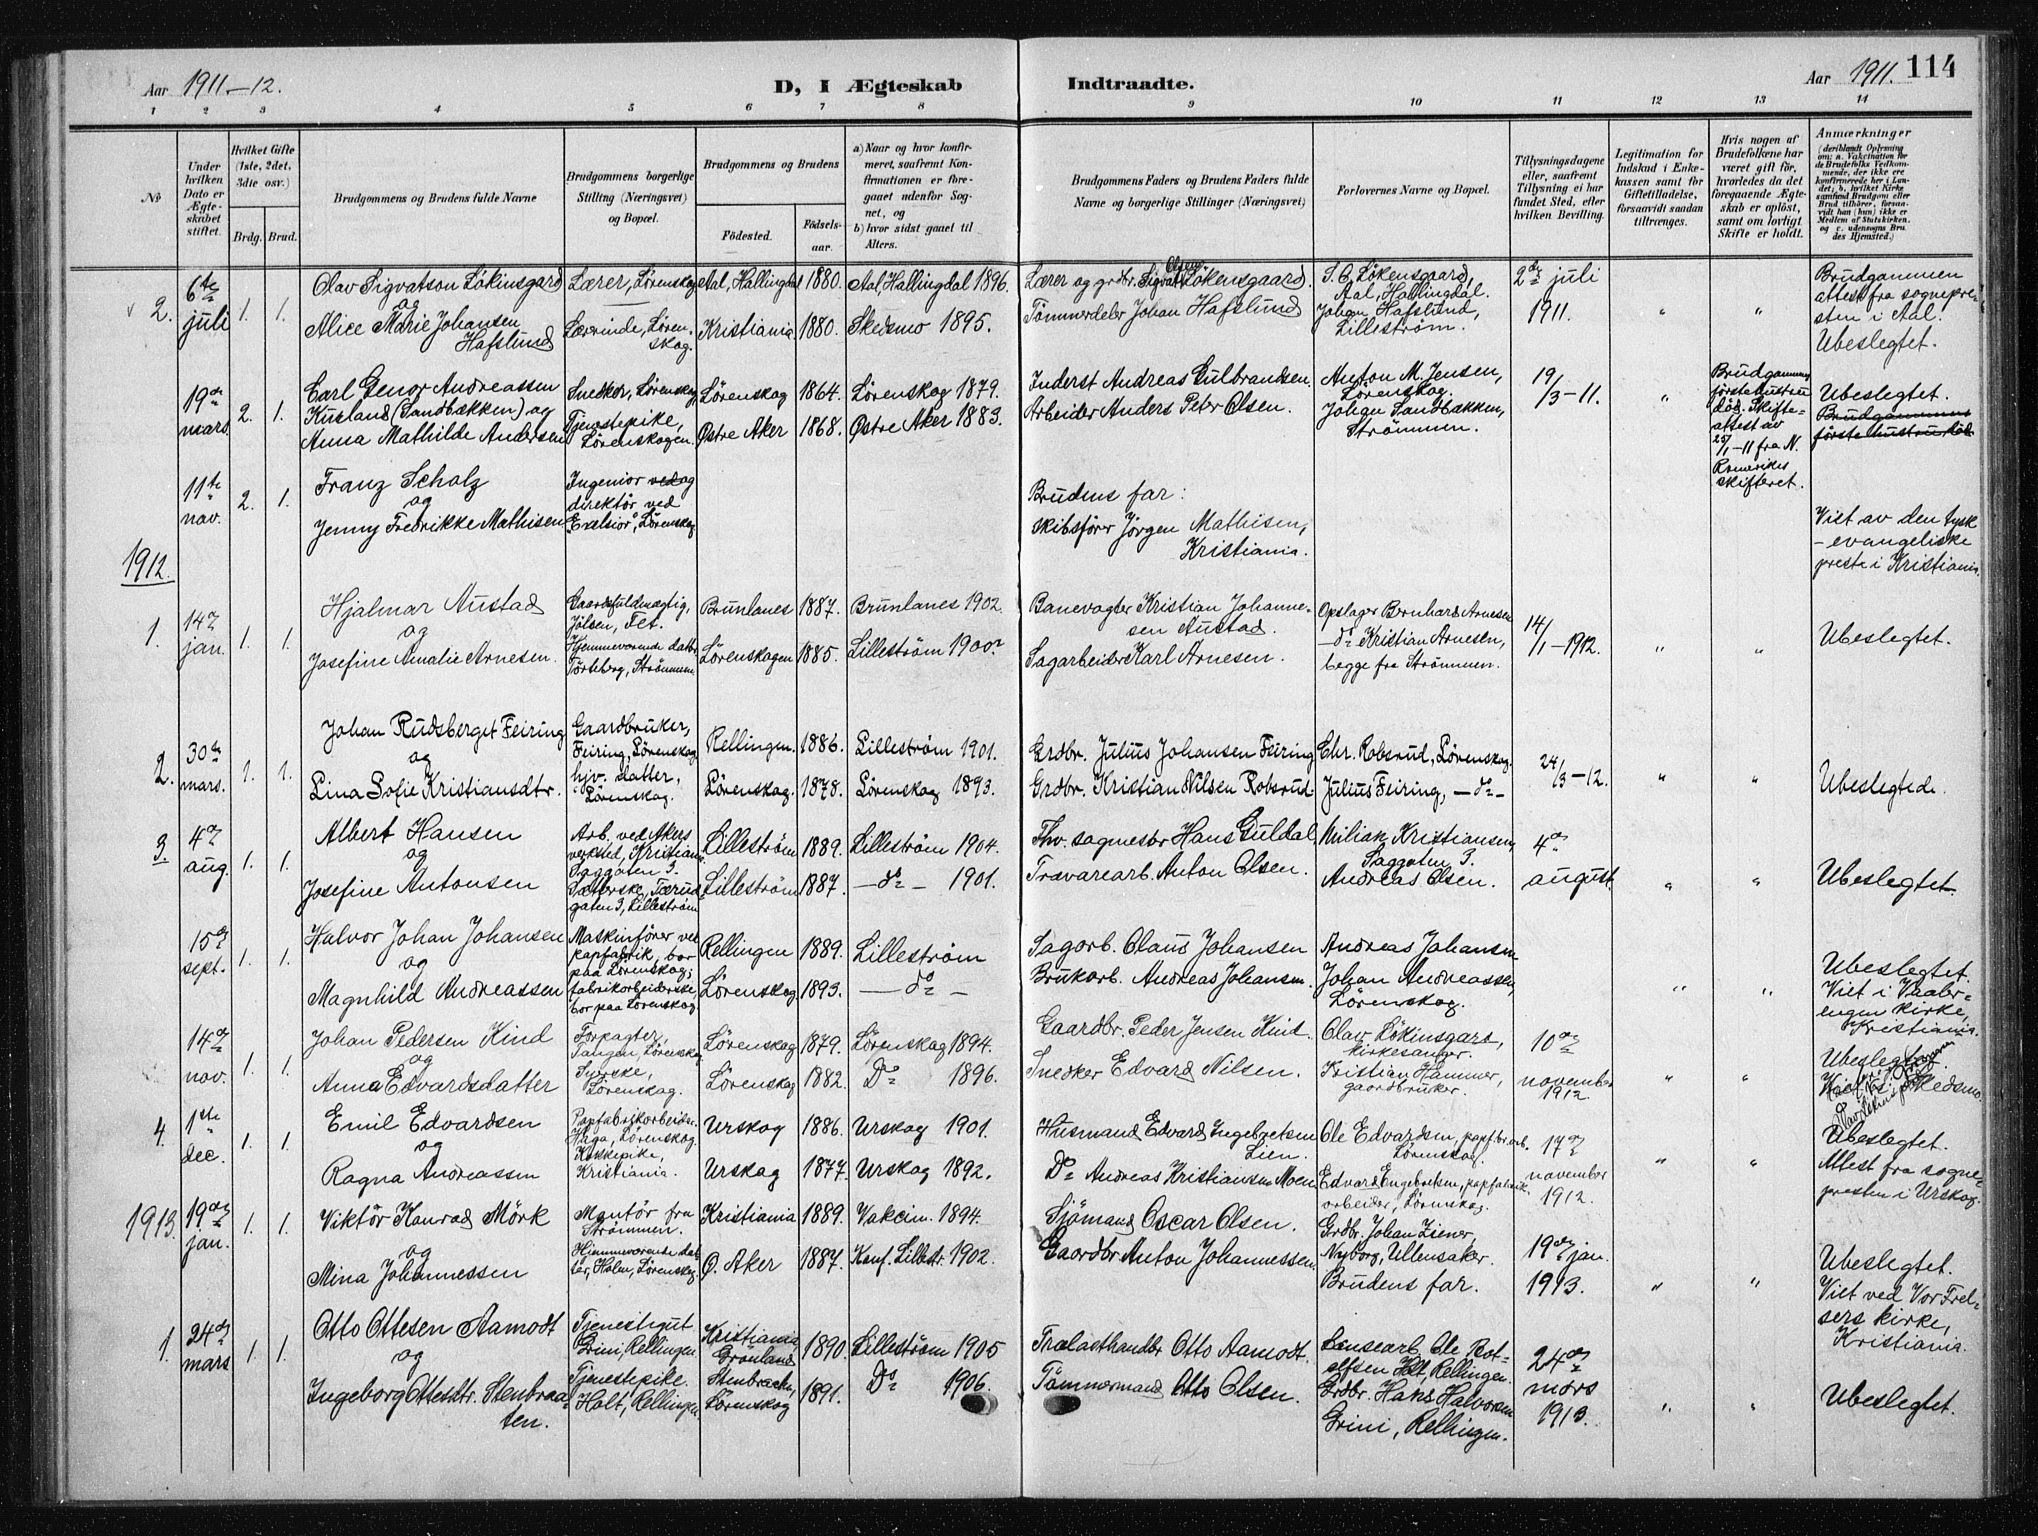 Aar 1911-12.
D, I Ægteskab Indtraadte.
Aar 1911. 114
1 2 3 4 5 6 7 8 9 10 11 12 13 14
No
Under hvilken Dato er Ægteskabet stiftet.
Hvilket Gifte (1ste, 2det, 3die osv.)
Brdg. Brud.
Brudgommens og Brudens fulde Navne
Brudgommens borgerlige Stilling (Næringsvei) og Bopæl.
Brudgommens og Brudens
Fødested. Fødselsaar.
a) Naar og hvor konfirmeret, saafremt Konfirmationen er foregaaet udenfor Sognet, og
b) hvor sidst gaaet til Alters.
Brudgommens Faders og Brudens Faders fulde Navne og borgerlige Stillinger (Næringsvei)
Forlovernes Navne og Bopæl.
Tillysningsdagene eller, saafremt Tillysning ei har fundet Sted, efter hvilken Bevilling.
Legitimation for Indskud i Enkekassen samt for Giftetilladelse, forsaavidt saadan tiltrænges.
Hvis nogen af Brudefolkene har været gift før, hvorledes da det foregaaende Ægteskab er opløst, samt om lovligt Skifte er holdt.
Anmærkninger (deriblandt Oplysning om: a. Vakcination for de Brudefolks Vedkommende, der ikke ere konfirmerede her i Landet; b. hvilket Kirkesamfund Brudgom eller Brud tilhører, forsaavidt han (hun) ikke er Medlem af Statskirken, og c. udensogns Brudes Hjemsted.)
2. 6te juli 1. 1.
Olav Sigvatson Løkinsgard
og
Alice Marie Johansen Hafslund
Lærer, Lørenskog
Lærerinde, Lørenskog.
Aal, Hallingdal 1880. Aal, Hallingdal 1896.
Kristiania 1880. Skedsmo 1895.
Lærer og grdbr. Sigvat Olsen Løkensgaard.
Tømmerdeler Johan Hafslund
S. O. Løkensgaard, Aal, Hallingdal.
Johan Hafslund, Lillestrøm.
2den juli 1911. " "
Brudgommen attest fra sognepresten i Aal.
Ubeslegtet.
19de mars. 2. 1.
Carl Genor Andreassen
Kurland (Sandbækken) og
Anna Mathilde Andersen
Snedker, Lørenskog
Tjenestepike, Lørenskogen.
Lørenskog 1864. Lørenskog 1879.
Østre Aker 1868. Østre Aker 1883.
Inderst Andreas Gulbrandsen.
Arbeider Anders Petr Olsen.
Anton M. Jensen, Lørenskog.
Johan Sandbækken, Strømmen.
19/3-11. "
Brudgommens første hustru død. Skifteattest av 25/1-11 fra N. Romerikes skifteret.
Ubeslegtet.
Brudgommens første hustru død
11te nov. 2. 1.
Franz Scholz
og
Jenny Fredrikke Mathisen
Ingeniør ved og direktør ved Exelsior, Lørenskog
Brudens far:
skibsfører Jørgen Mathisen, Kristiania.
Viet av den tysk-evangeliske prest i Kristiania.
1912.
1. 14de jan. 1. 1.
Hjalmar Austad
og
Josefine Amalie Arnesen.
Gaardsfuldmægtig, Jølsen, Fet.
Hjemmeværende datter Torteberg, Strømmen.
Brunlanes 1887. Brunlanes 1902.
Lørenskogen 1885. Lillestrøm 1900
Banevogter Kristian Johannesen Austad.
Sagarbeider Karl Arnesen.
Opslager Bernhard Arnesen
-do- Kristian Arnesen, begge fra Strømmen.
14/1-1912. " "
Ubeslegtet.
2. 30de mars. 1. 1.
Johan Rudsberget Feiring
og
Lina Sofie Kristiansdtr.
Gaardbruker, Feiring, Lørenskog
hjv. datter, Lørenskog.
Rellingen. 1886. Lillestrøm 1901.
Lørenskog. 1878. Lørenskog 1893.
Grdbr. Julius Johansen Feiring
Grdbr. Kristian Nilsen Robsrud.
Chr. Robsrud, Lørenskog.
Julius Feiring, -do-
24/3-12. " "
Ubeslegtede.
3. 4de aug. 1. 1.
Albert Hansen
og
Josefine Antonsen
Arb. ved Akers verksted, Kristiania Saggaten 3.
gaten 3, Lillestrøm
Lillestrøm 1889. Lillestrøm 1904.
Lillestrøm 1887. -do- 1901.
Fhv. sagmester Hans Guldal
Travarearb. Anton Olsen.
Kristiansen, Saggaten 3.
Andreas Olsen.
4de august. " "
Ubeslegtet.
15de sept. 1. 1.
Halvor Johan Johansen
og
Magnhild Andreassen
Maskinfører ved papfabrik, bor paa Lørenskog;
fabrikarbeiderske, bor paa Lørenskog.
Rellingen 1889. Lillestrøm
Lørenskog 1893. -do-
Sagarb. Claus Johansen
Brukarb. Andreas Johansen.
Andreas Johansen
Johan Andreassen, Lørenskog.
" "
Ubeslegtet.
Viet i Vaalerengen kirke, Kristiania.
14de nov. 1. 1.
Johan Pedersen Kind
og
Anna Edvardsdatter
Forpagter, Tangen, Lørenskog
Syerske, Lørenskog.
Lørenskog 1879. Lørenskog 1894.
Lørenskog 1882. Do 1896.
Gaardbr. Peder Jensen Kind.
Snedker Edvard Nilsen.
Olav Løkinsgard, kirkesanger.
Kristian Hammer, gaardbruker.
10de november 1912. " "
Ubeslegtet.
Skedsmo.
4. 1ste dec. 1. 1.
Emil Edvardsen
og
Ragna Andreassen
Papfabrikarbeider Haga, Lørenskog.
Kokkepike, Kristiania.
Urskog 1886. Urskog 1901.
Urskog 1877. Urskog 1892.
Husmand Edvard Ingebretsen Lien.
Do Andreas Kristiansen Moen.
Ole Edvardsen, papfbr.arb. Lørenskog.
Edvard Engebretsen, papfabrikarbeider, Lørenskog.
17de november 1912. " "
Ubeslegtet.
Attest fra sognepresten i Urskog.
1913.
19de jan. 1. 1.
Viktor Konrad Mørk
og
Mina Johannessen
Montør fra Strømmen.
Hjemmeværende datter, Holen, Lørenskog.
Kristiania 1889. Vakcin. 1894.
Ø. Aker 1887. Konf. Lillestr. 1902.
Sjømand Oscar Olsen.
Gaardbr. Anton Johannessen.
Grdbr. Johan Ziener, Nyborg, Ullensaker.
Brudens far.
19de jan. 1913. " "
Ubeslegtet.
Viet ved Vor Frelsers kirke, Kristiania.
1. 24de mars 1. 1.
Otto Ottesen Aamodt
og
Ingeborg Ottesdtr. Stenbraaten.
Tjenestegut Grini, Rellingen
Tjenestepike. Holt, Rellingen
Kristiania, Grønland 1890. Lillestrøm 1905
Stenbraaten, Lørenskog 1891. Do 1906.
Trælasthandler Otto Aamodt.
Tømmermand Otto Olsen.
Ole Rolfsen Holt, Rellingen.
Grdbr. Hans Halvorsen Grini, Rellingen.
24de mars 1913. " "
Ubeslegtet.